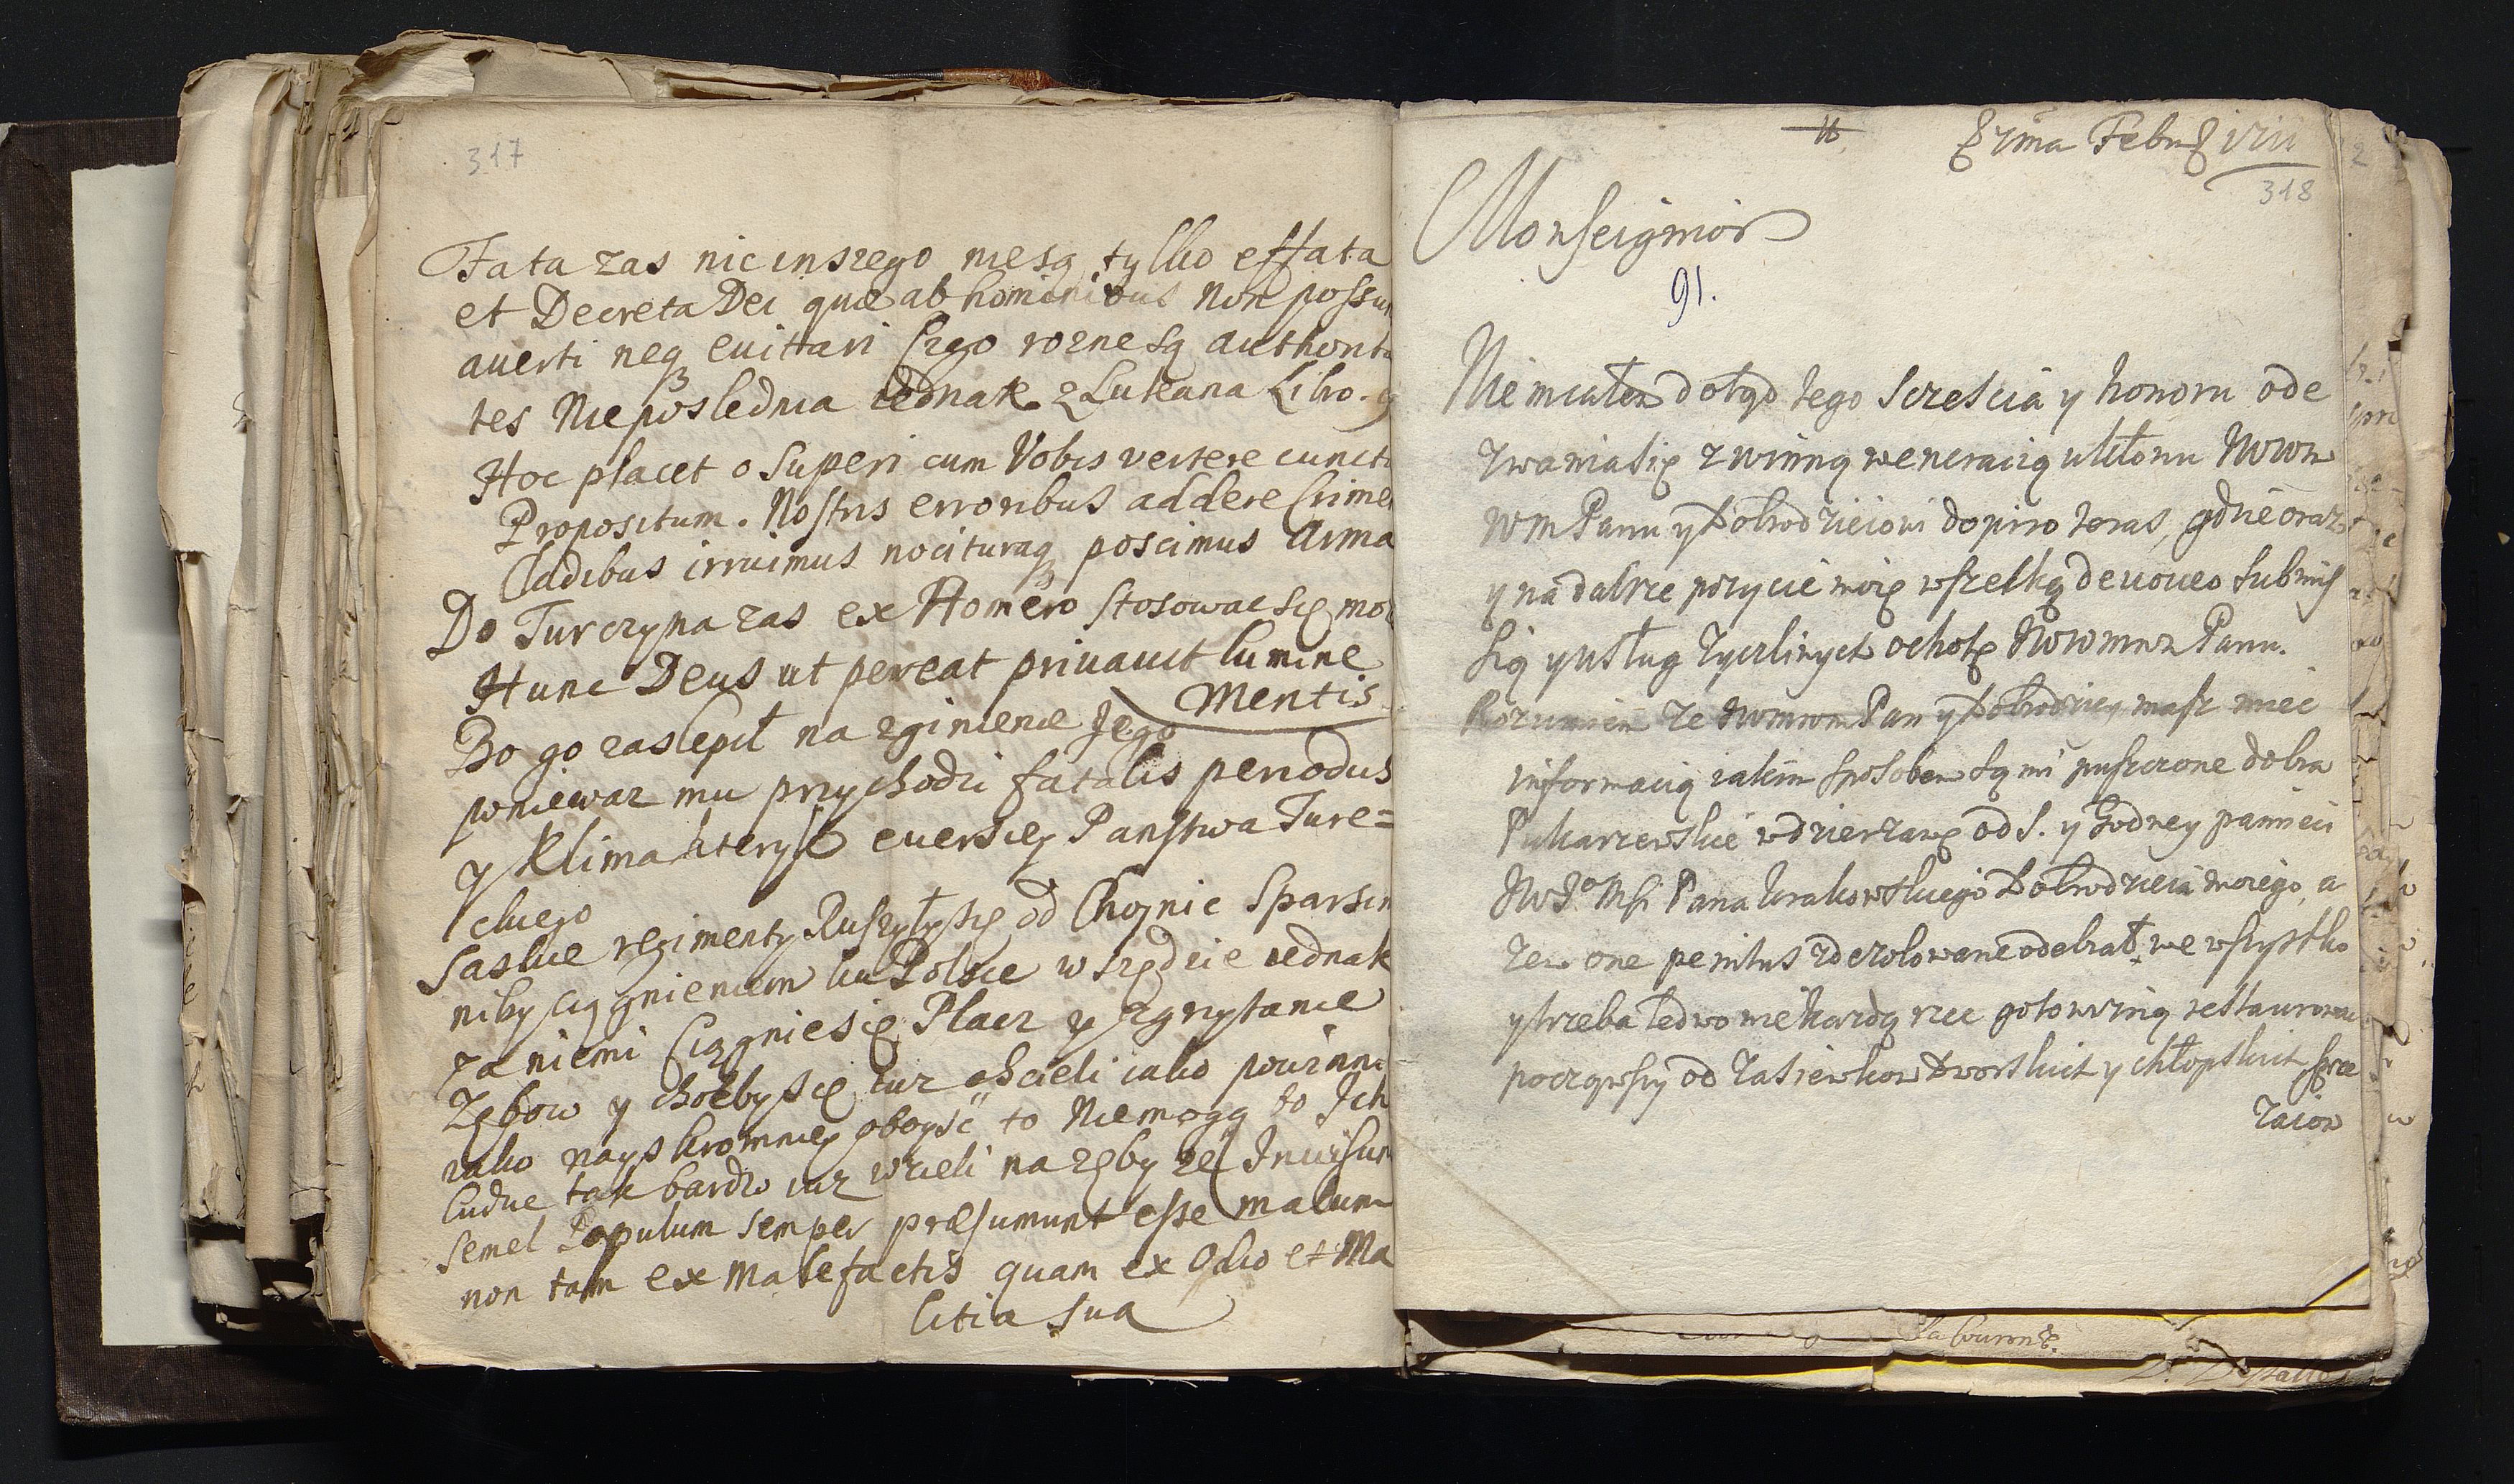 317
Fata zas nic inszego niesą tylko effata
et Decreta Dei quæ ab hominibus Non possu
auerti neq evittari Ergo rozne są authorita
tes Nieposlednia iednak z Lukana Libro. 9
Hoc placet o Superi cum Vobis vertere cuncta
Propositum. Nostris erroribus addere Crimen
Cladibus irruimus nocituraq poscimus Arma
Do Turczyna zas ex Homero stosowac się mo
Hunc Deus ut pereat priuauit lumine
Mentis
Bo go zaslepił na zginienie Jego
poniewaz mu przychodzi fatalis periodus
y Klimakteryk euersiey Panstwa Ture=
ckiego
Saskie regimenty Ruszyły się od Choynic Sparsim
niby ciągnieniem ku Polsce wszędzie iednak
za niemi Ciągnie się Placz y Zgrzytanie
Zębow y chocby się iuz chcieli iako powinni
iako nayskromniey obeysc to Niemogą bo Ich
ludzie tak bardzo iuz wzieli na zęby ze Inuisum
semel Populum semper præsumunt esse malum
non tam ex malefactis quam ex Odio et Ma
litia sua
11
Febru 1711
318
Monseignior
91.
Nie miałem dotąd tego Szczescia y honoru ode
zwania się z winną weneracią ukłonu
WM Panu y Dobrodzieiowi dopiro teras, gdzie oraz
y na dalsze pozycie moię wszelką deuoueo submis
sią y usług zyczliwych ochotę Panu.
Rozumiem ze Pan y Dobrodziey masz miec
informacią iakim sposobem są mi puszczone dobra
Pukarzewskie w dzierzawę od S. y Godney pamieci
JWJo Msci Pana Krakowskiego Dobrodzieia moiego, a
zem one penitus zdezolowane odebrał, we wszystko
y trzeba ledwo nie kazdą rzec gotowizną restaurowac
począwszy od zasiewkow Dworskich y chłopskich, sprze
zaiow
la Couronne.